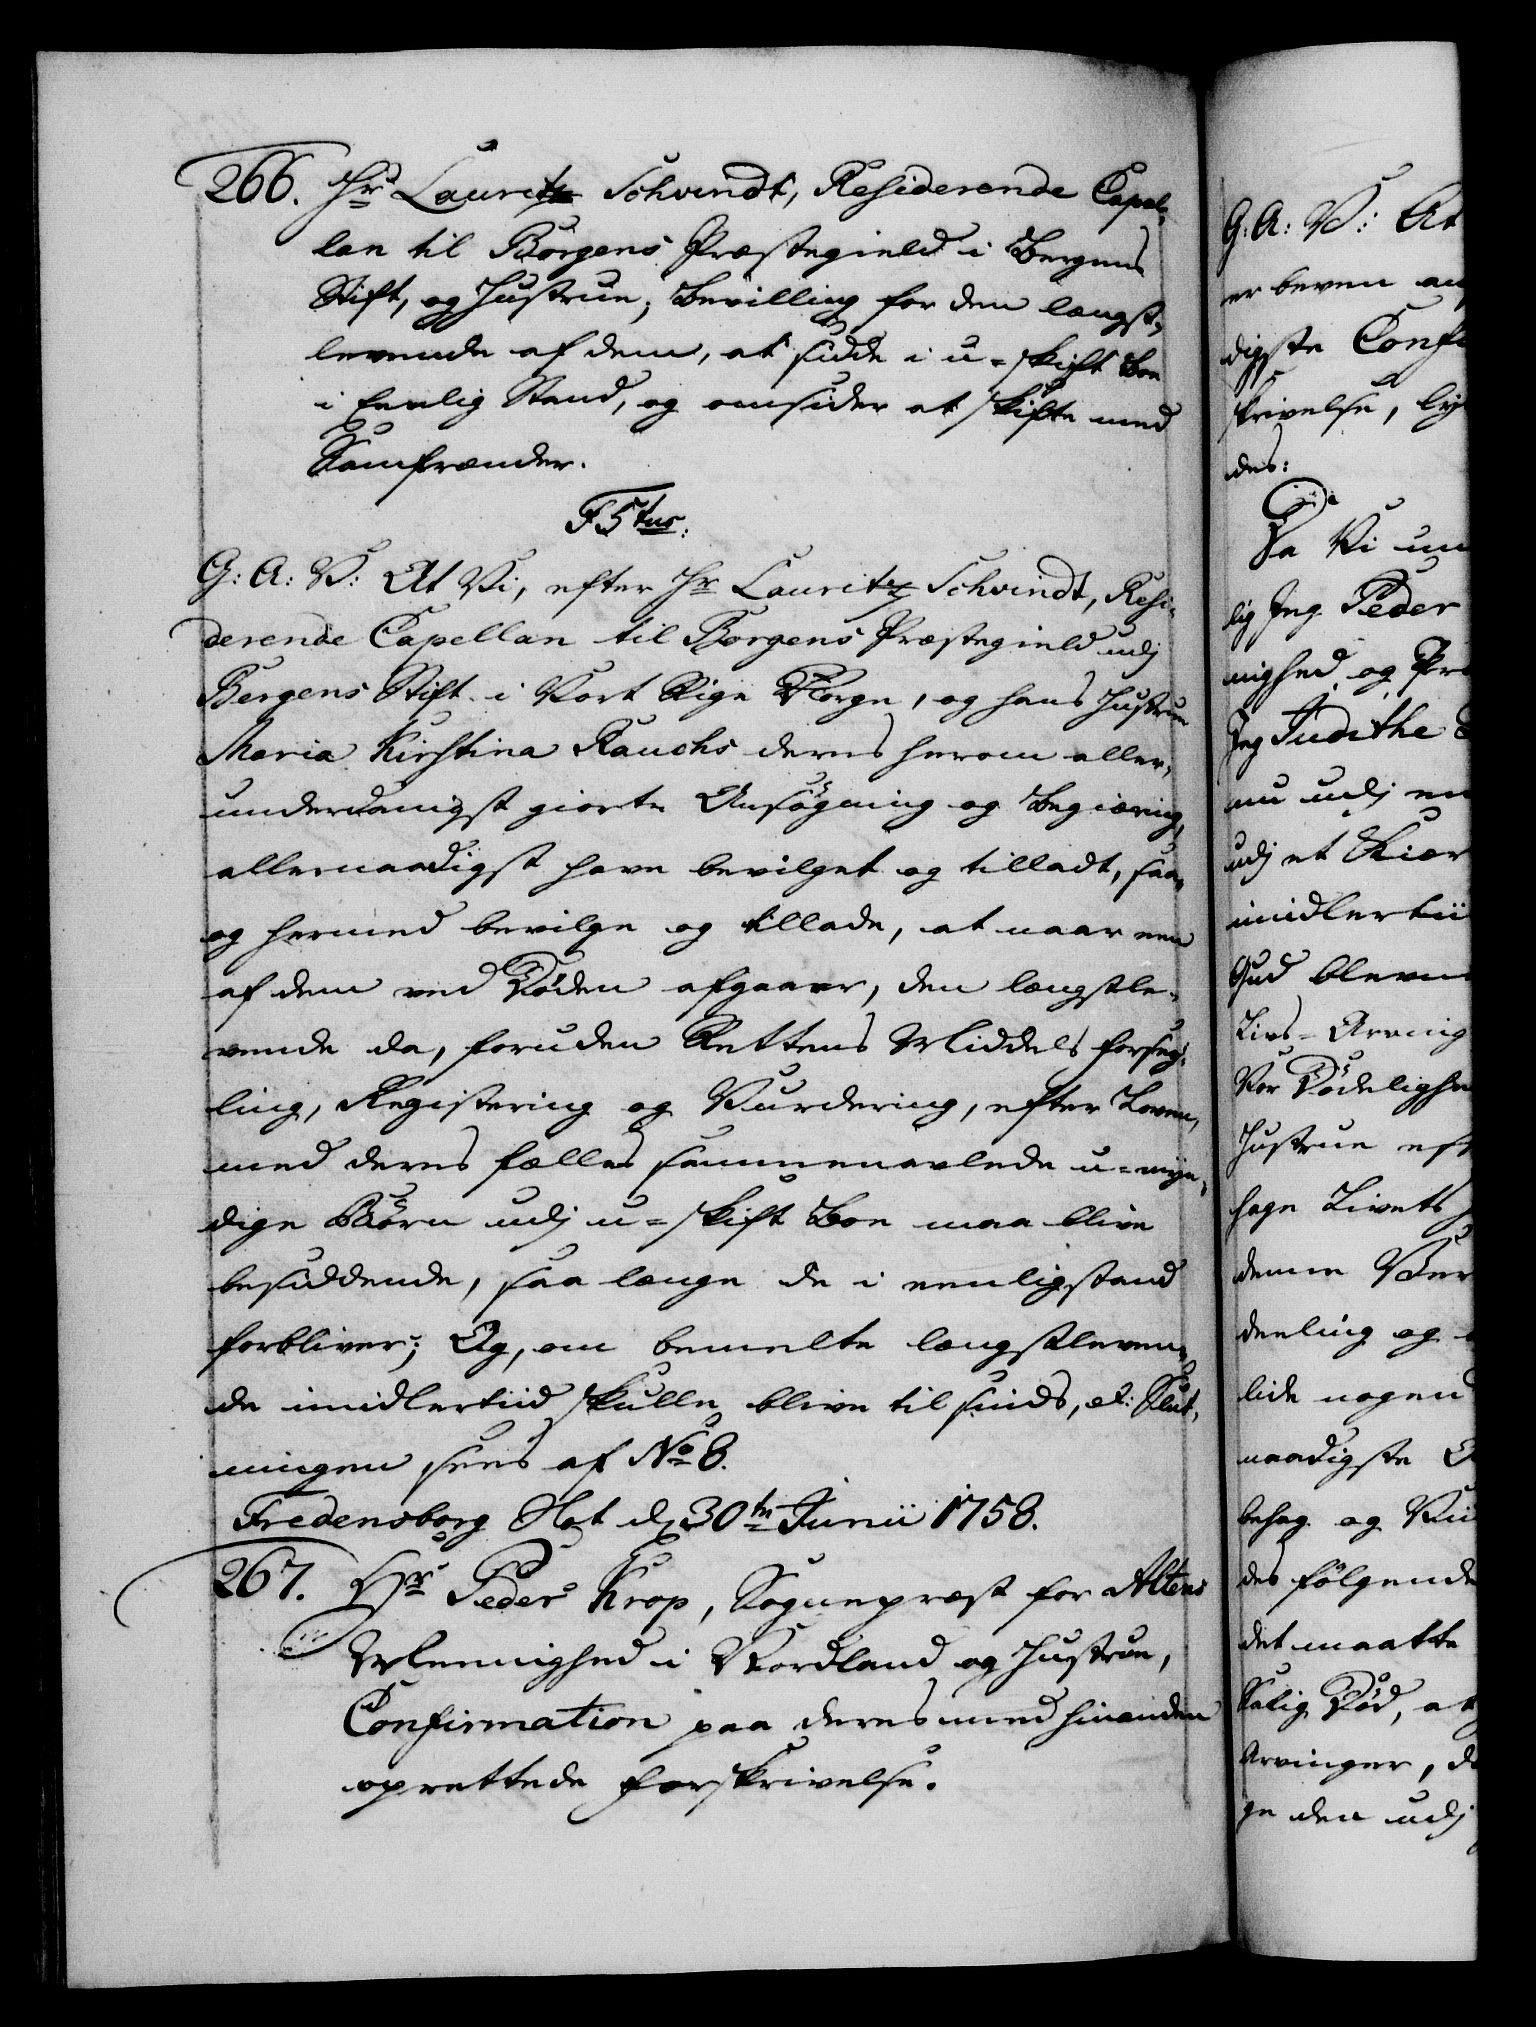 266. Hr Lauritz Schvindt, Residerende Capel-
lan til Borgens Præstegield i Bergens
Stift, og Hustrue, Bevilling for den længst-
levende af dem, at sidde i u-skift Boe
i Eenlig Stand, og omsider at skifte med
Samfrænder.
F 5tus.
G: A: V: At Vi, efter Hr Lauritz Schvindt, Resi-
derende Capellan til Borgens Præstegield udj
Bergens Stift i Vort Rige Norge, og hans Hustrue
Maria Kirstina Rauchs deres herom aller-
underdanigst giorte Ansøgning og Begiæring,
allernaadigst have bevilget og tilladt, saa-
og hermed bevilge og tillade, at naar een
af dem ved Døden afgaaer, den længstle-
vende da, foruden Rettens Middels forseg-
ling, Registering og Vurdering, efter Loven,
med deres fælles sammenavlede u-myn-
dige Børn udj u-skift Boe maa blive
besiddende, saa længe de i eenligstand
forbliver; Og, om bemelte længstleven-
de imidlertiid skulle blive til sinds, et: Slut-
ningen sees af No 8.
Fredensborg Slot d 30te Junii 1758.
267. Hr Peder Krop, Sognepræst for Altens
Meenighed i Nordland og Hustrue,
Confirmation paa deres med hinanden
oprettede forskrivelse.
G: A: V: At
er beven an
digste Conf
skrivelse, ly
des:
Da Vi un
lig Jeg Peder
nighed og Præ
Jeg Judithe
nu udj en
udj et Kiær
imidlertii
Gud bleven
Livs-Arving
Vor Dødelighe
Hustrue eft
hage Livets
denne Ver
deeling og
lide nogen
naadigste
behag og Vii
des følgende
det maatte
Salig Død, at
Arvinger, d
ge den udj